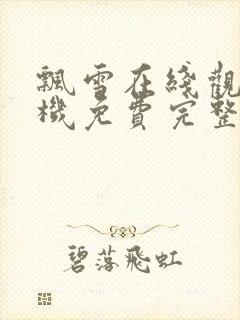 飄雪在綫觀
機免費完整
碧落飛虹